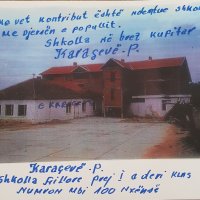 vet kontribut është ndërtue shkolla
Me djersën e popullit.
Shkolla në brez kufitar
Karaçevë-P.
Karaçevë-P.
Shkolla fillore prej I a deri
Numron mbi 100 Nxënsë